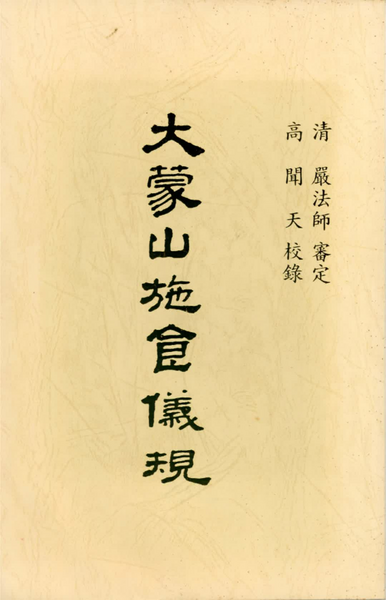 清嚴法師審定
高聞天校錄
大蒙山施食儀規